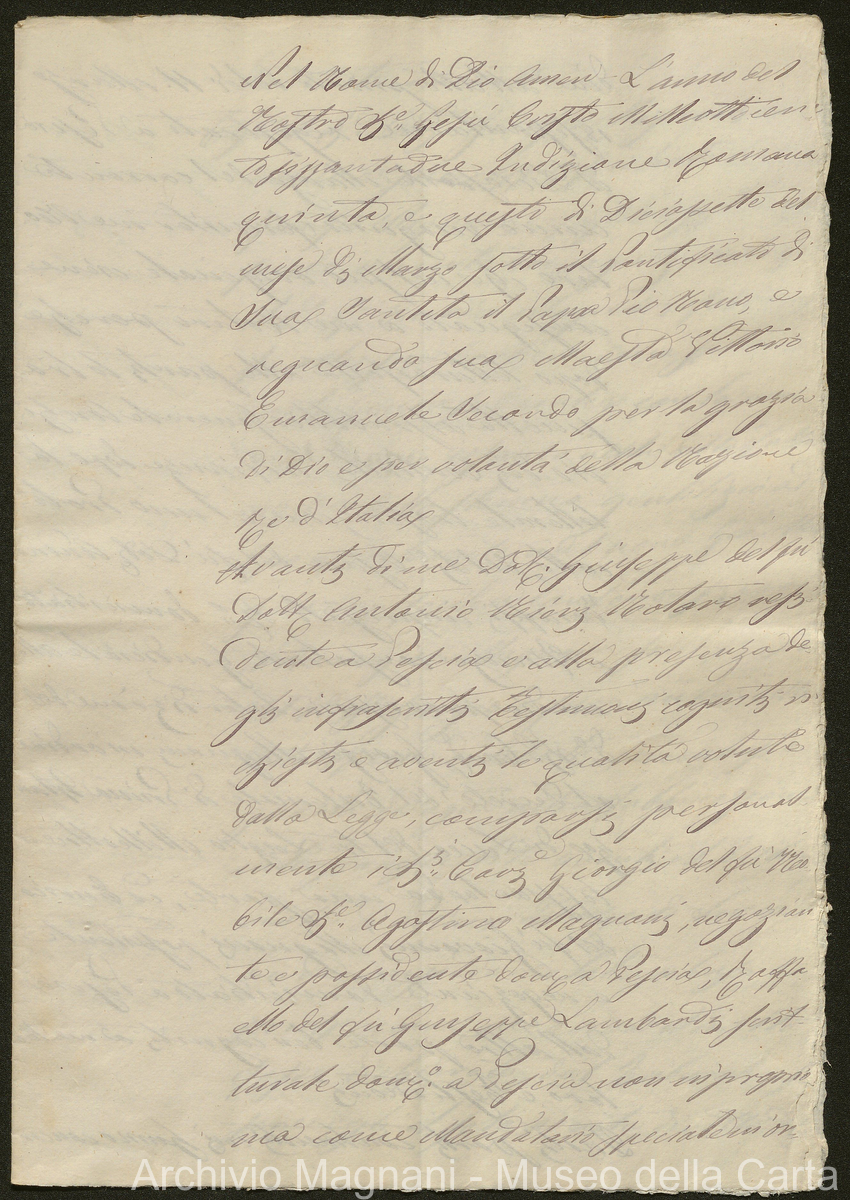 Nel Nome di Dio Amen L'anno del
Nostro Sre. Gesù Cristo Milleottocen-
tosessantadue Indizione Romana
quinta, e questo dì Diciassette del
mese di Marzo sotto il Pontificato di
Sua Santità il Papa Pio Nono, e
regnando sua Maestà Vittorio
Emanuele Secondo per la grazia
di Dio e per volontà della Nazione
Re d'Italia
Avanti di me Dott. Giuseppe del fù
Dott. Antonio Notaro resi
dente a Pescia e alla presenza de-
gli infrascritti Testimonj cogniti ri
chiesti e aventi le qualità volute
dalla Legge, comparsi personal
mente i Sri. Cave. Giorgio del fù No
bile Sre. Agostino Magnani, negozian
te e possidente domo. a Pescia, Raffa
ello del fù Giuseppe Lambardi scrit
turale domo. a Pescia non in proprio
ma come Mandatario speciale in or-
Archivio Magnani - Museo della Carta